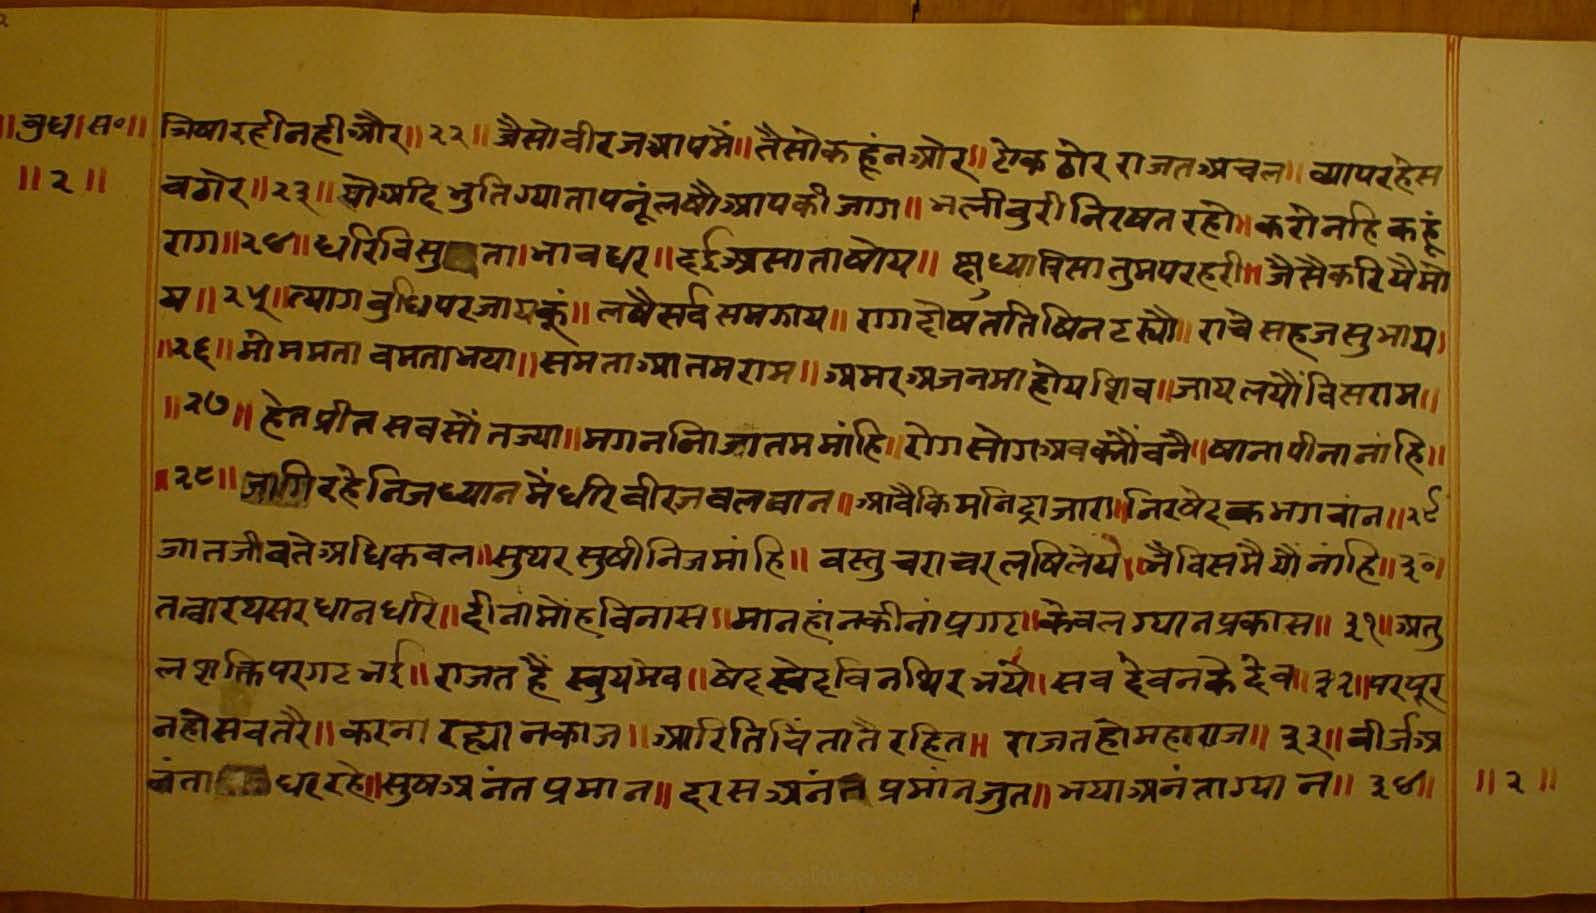 ॥बुध॥स॰॥
॥२॥
त्रिषा रही नही और॥२२॥ जैसो वीरज आपमैं॥ तैसो कहूं न ओर॥ टेक ठोर राजत अचल॥ व्याप रहे स
व ठोर॥२३॥ भुति ग्याता पनूं लषौ आपकी जाग॥ भली बुरी निरषत रहो॥ करो नहि कहूं
राग॥२४॥ धरि विसु ता। भाव धर॥ दई असाता षोय॥ क्षुध्या त्रिसा तुम परहरी॥ जैसै करियै मो
य॥२५॥ त्याग बुधि परजाय कूं॥ लषै सर्व समझाय॥ राग दोष तति षिन टर्‍यौ॥ राचे सहज सुभाय॥
॥२६॥ मो ममता वमता भया॥ समता आतमराम॥ अमर अजनमा होय शिव॥ जाय लयौं विसराम॥
॥२७॥ हेत प्रीत सब सौं तज्या॥ मगन निजातम मांहि॥ रोग सोग अब क्यौं बनै॥ षाना पीना नांहि॥
॥२८॥ जागि रहे निज ध्यान मैं धरि वीरज बलवान॥ आवै किम निद्रा जारा॥ निरषेदक भगवांन॥२९
जात जीव ते अधिक बल॥ सुथर सुषी निज मांहि॥ वस्तु चराचर लषि लेयें॥ भै विसमै यौं नांहि॥३०॥
तत्वारथ सरधान धरि॥ दीनां मोंह विनास॥ मान हांन कीनां प्रगट॥ केवल ग्यान प्रकास॥३१॥ अतु
ल शक्ति परगट भई॥ राजत हैं स्वयमेव॥ षेद स्वेद विन थिर भयें॥ सब देवन के देव॥३२॥ परपूर
न हो सब तरै॥ करना रह्या न काज॥ आरिति चिंता तै रहित॥ राजत हो महाराज॥३३॥ वीर्ज अ
नंता धर रहे॥ सुष अनंत प्रमान॥ दरस अनंत प्रमांन जुत॥ भया अनंता ग्यान॥३४॥
॥२॥